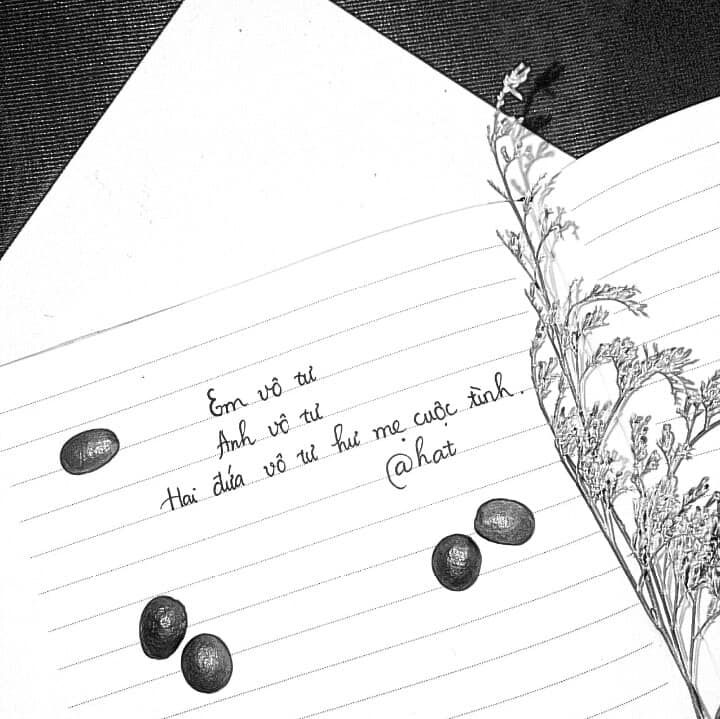 Em vô tư
Anh vô tư
Hai đứa vô tư hư mẹ cuộc tình.
@hat